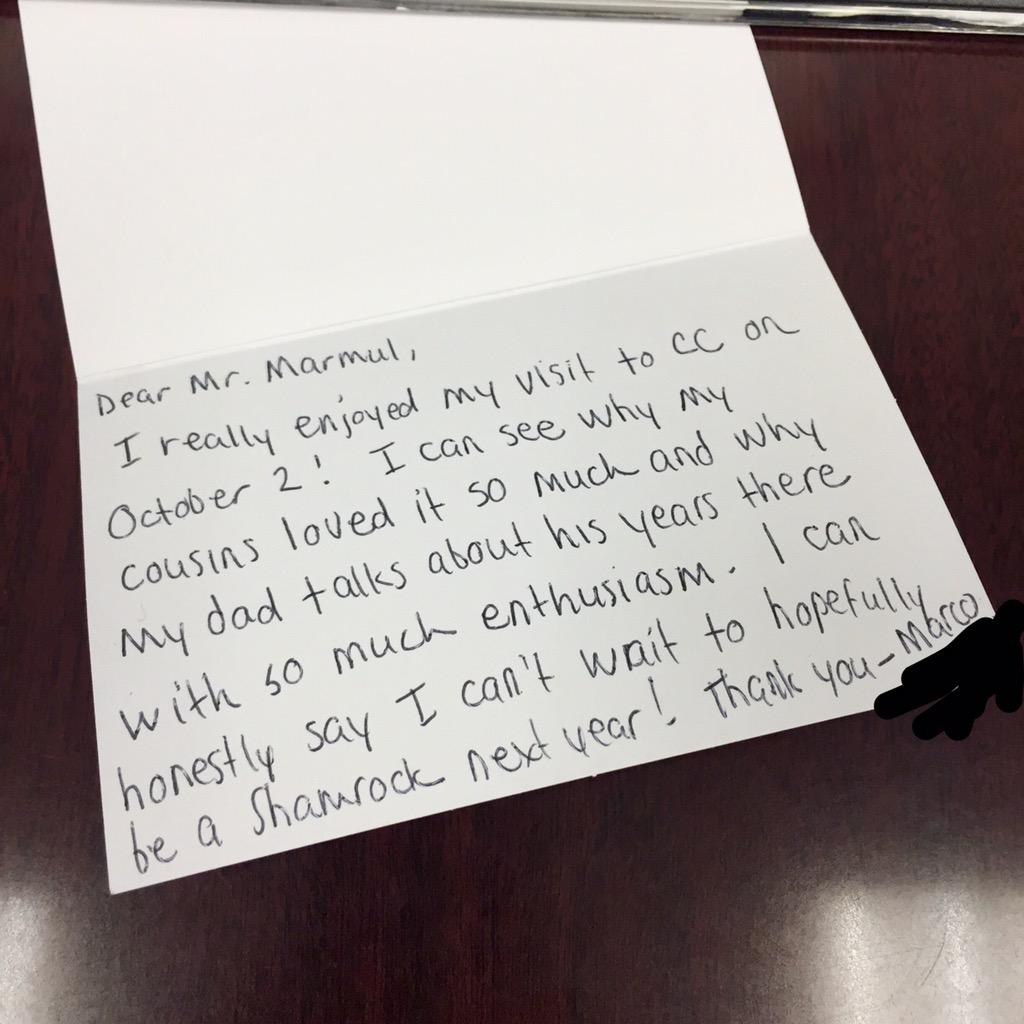 Dear Mr. Marmul,
I really enjoyed my visit to CC on
October 2! I can see why my
cousins loved it so much and why
my dad talks about his years there
with so much enthusiasm. I can
honestly say I can't wait to hopefully
be a Shamrock next year! Thank you - Marco